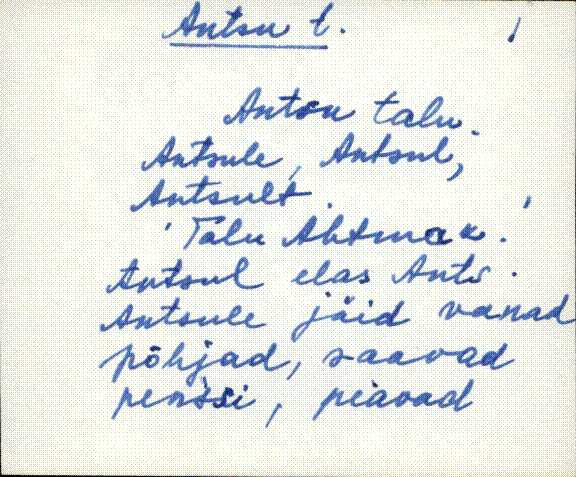 Antsu t.
Antsu talu.
Antsule, Antsul,
Antsult.
Talu Ahtmas.
Antsul elas Ants.
Antsule jäid vanad
põhjad, saavad
penssi, peavad